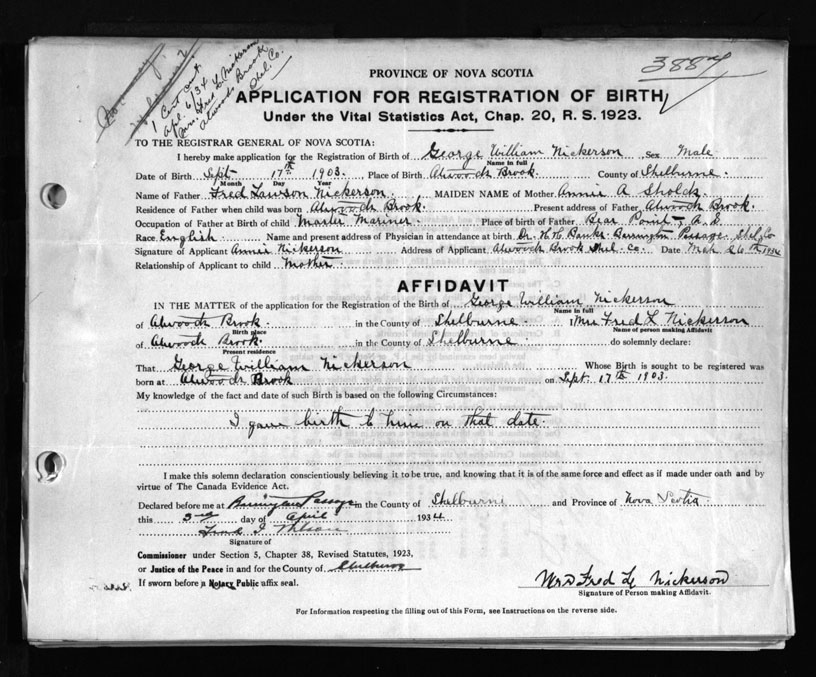 3884
1 Cert. sent
Apl. 6/34
Mrs. Fred L. Nickerson
Atwoods Brook
Shel. Co.
PROVINCE OF NOVA SCOTIA
APPLICATION FOR REGISTRATION OF BIRTH
Under the Vital Statistics Act, Chap. 20, R. S. 1923.
TO THE REGISTRAR GENERAL OF NOVA SCOTIA:
I hereby make application for the Registration of Birth of George William Nickerson Sex Male
Name in full
Date of Birth Sept 17th 1903. Place of Birth Atwoods Brook. County of Shelburne.
Month Day Year
Name of Father Fred Lawson Nickerson MAIDEN NAME of Mother Annie A
Residence of Father when child was born Atwoods Brook. Present address of Father Atwoods Brook.
Occupation of Father at Birth of child Master Mariner. Place of birth of Father Bear Point
Race English Name and present address of Physician in attendance at birth Dr. H. H. Banks Barrington Passage Shel. Co
Signature of Applicant Annie Nickerson Address of Applicant Atwoods Brook Shel. Co. Date Mch 26th 1934
Relationship of Applicant to child Mother
AFFIDAVIT
IN THE MATTER of the application for the Registration of the Birth of George William Nickerson
Name in full
of Atwoods Brook. in the County of Shelburne. I Mrs Fred L Nickerson
Birth place Name of person making Affidavit
of Atwoods Brook. in the County of Shelburne do solemnly declare:
Present residence
That George William Nickerson Whose Birth is sought to be registered was
born at Atwoods Brook on Sept. 17th 1903.
My knowledge of the fact and date of such Birth is based on the following Circumstances:
I gave birth to him on that date.
I make this solemn declaration conscientiously believing it to be true, and knowing that it is of the same force and effect as if made under oath and by
virtue of The Canada Evidence Act.
Declared before me at Barrington Passage in the County of Shelburne and Province of Nova Scotia
this 3rd day of April 1934
Signature of
Commissioner under Section 5, Chapter 38, Revised Statutes, 1923,
or Justice of the Peace in and for the County of Shelburne
If sworn before a Notary Public affix seal.
Mrs Fred L Nickerson
Signature of Person making Affidavit.
For Information respecting the filling out of this Form, see Instructions on the reverse side.